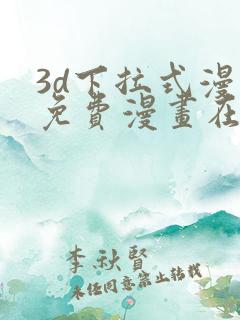 3d下拉式漫
免費漫畫在
李秋賢
未经同意禁止转载